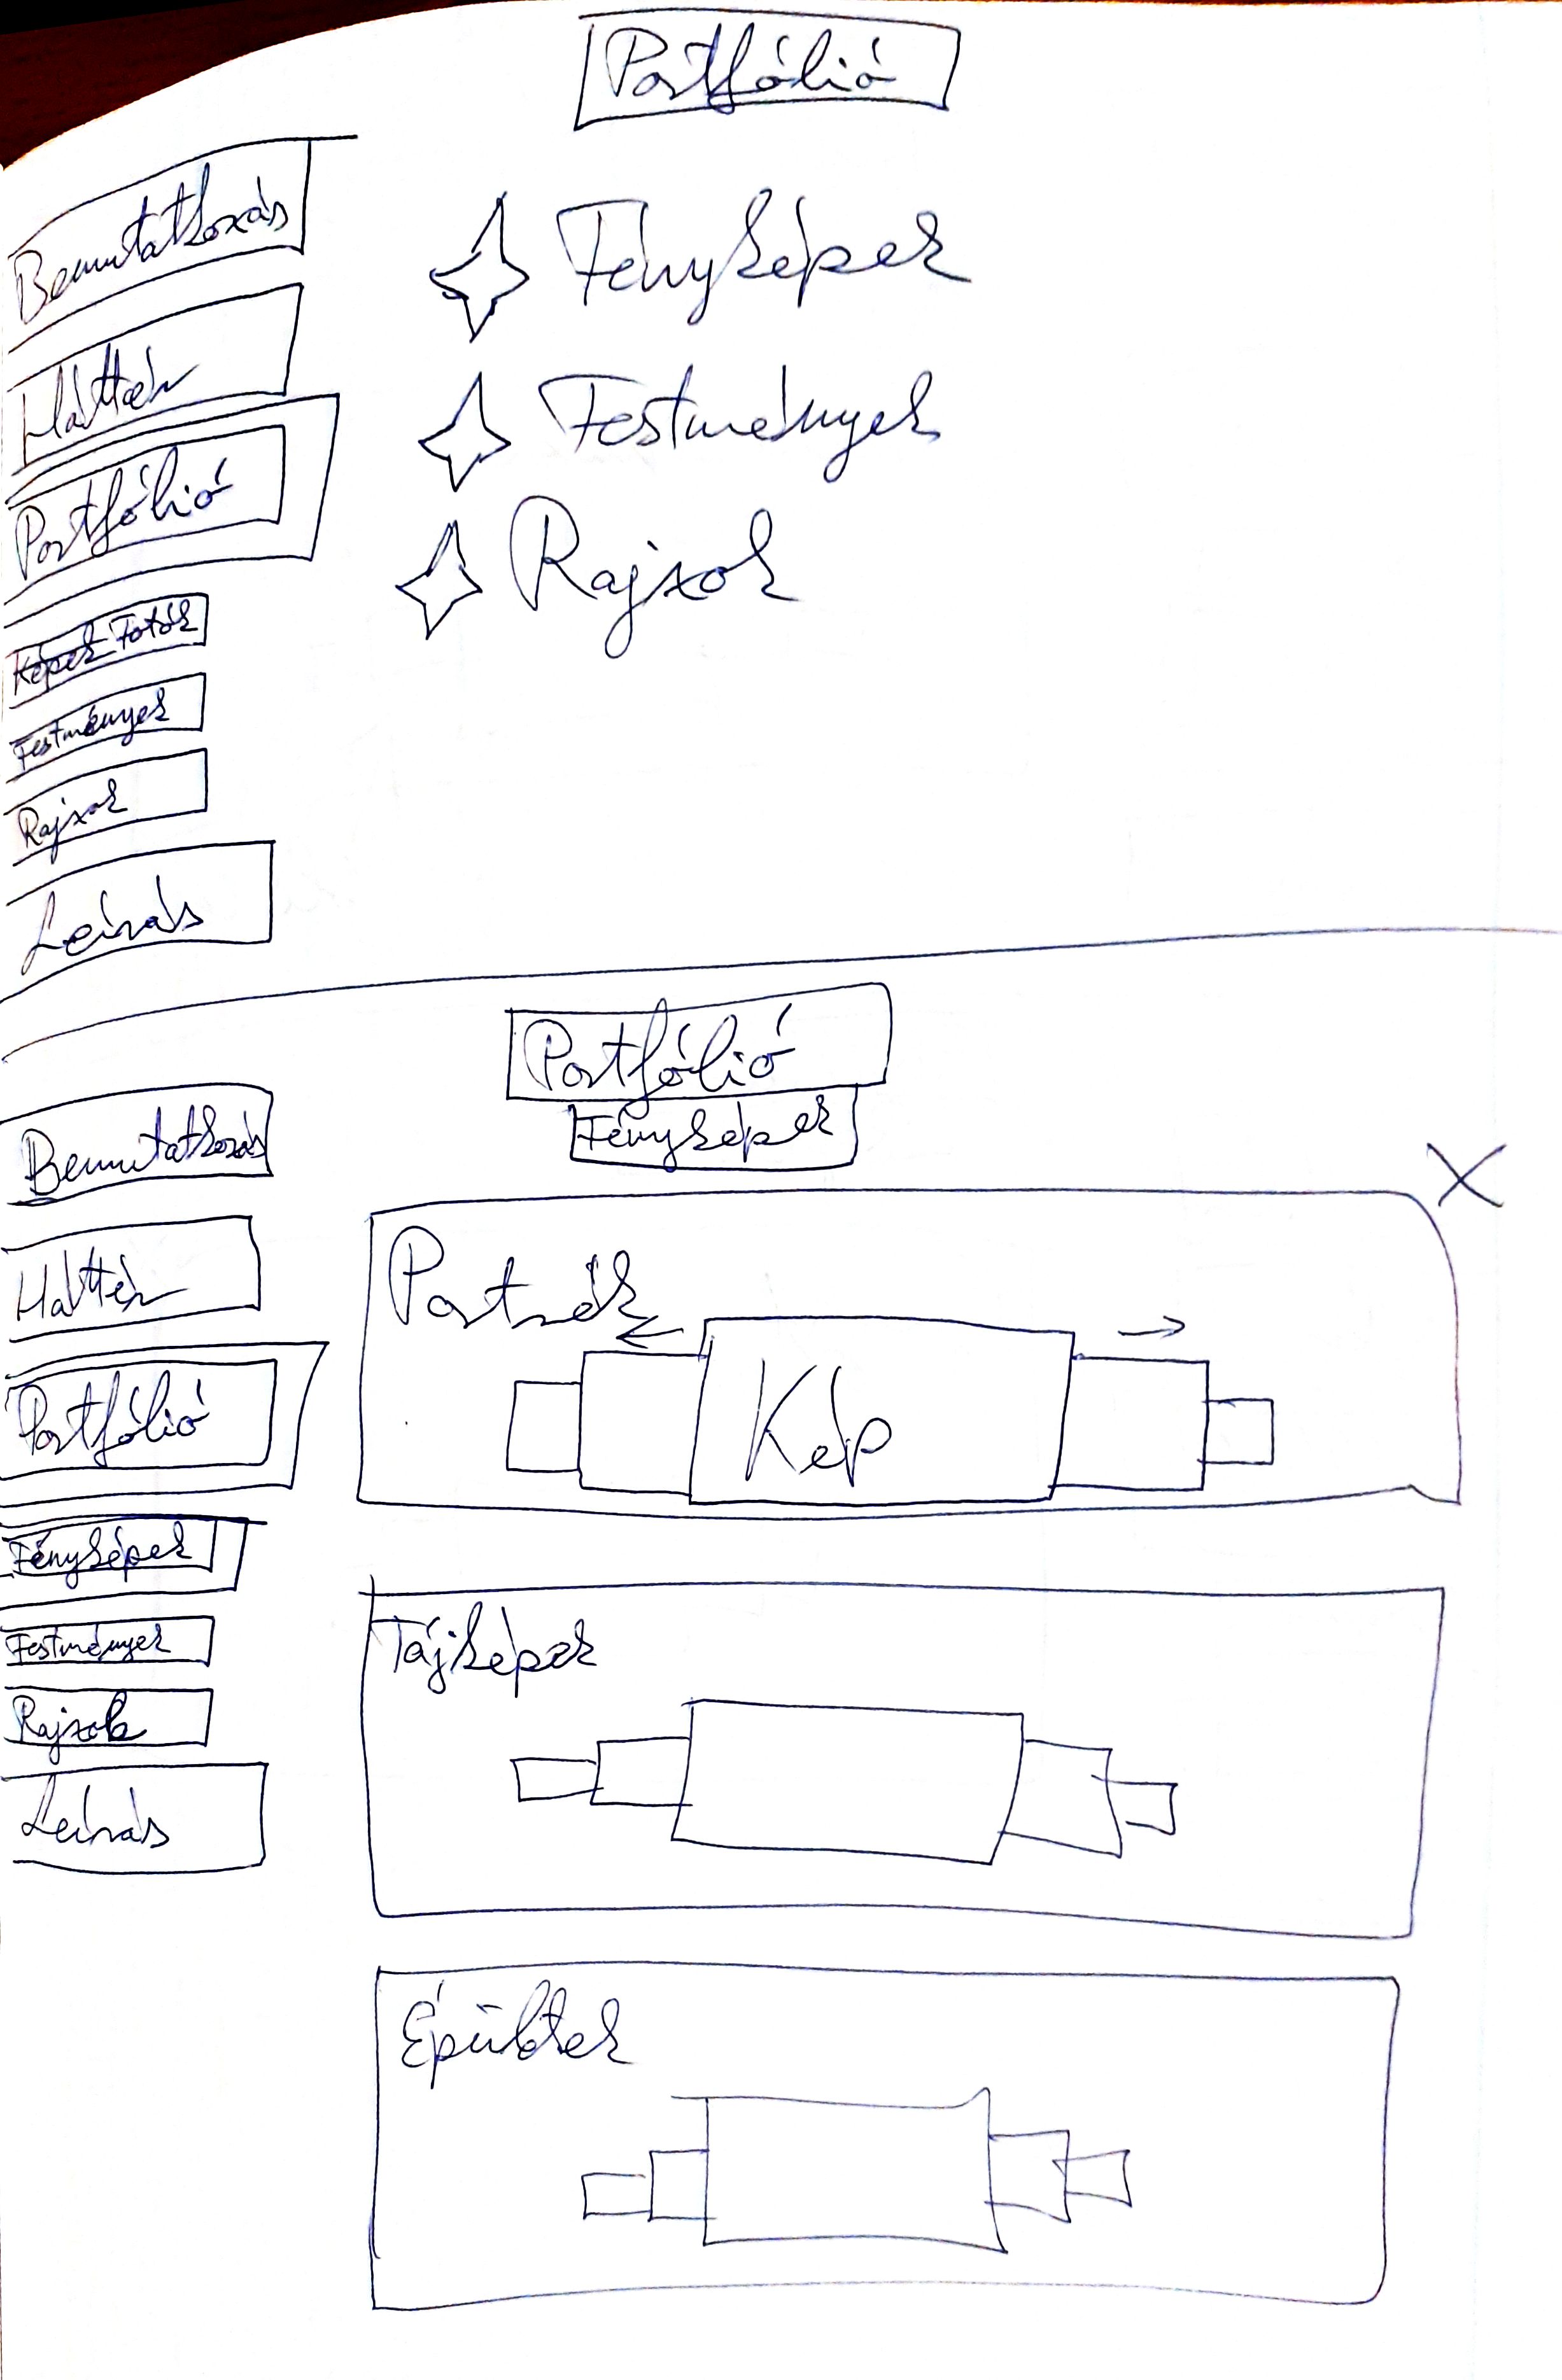 Portfólió
Bemutatkozás
Háttér
Portfólió
Képek Fotók
Festmények
Rajzok
Leírás
Fényképek
Festmények
Rajzok
Portfólió
Fényképek
Bemutatkozás
Háttér
Portfólió
Fényképek
Festmények
Rajzok
Leírás
X
Portrék
← →
Kép
Tájképek
Épületek